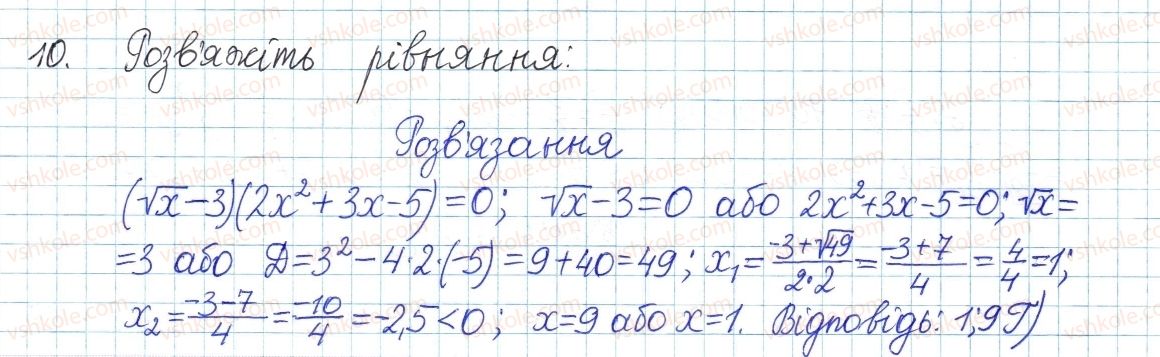 10. Розв'яжіть рівняння:
Розв'язання
(√x-3)(2x²+3x-5)=0; √x-3=0 або 2x²+3x-5=0; √x=
=3 або Д=3²-4·2·(-5)=9+40=49; x₁=(-3+√49)/(2·2)=(-3+7)/4=4/4=1;
x₂=(-3-7)/4=-10/4=-2,5<0; x=9 або x=1. Відповідь: 1;9 Г)